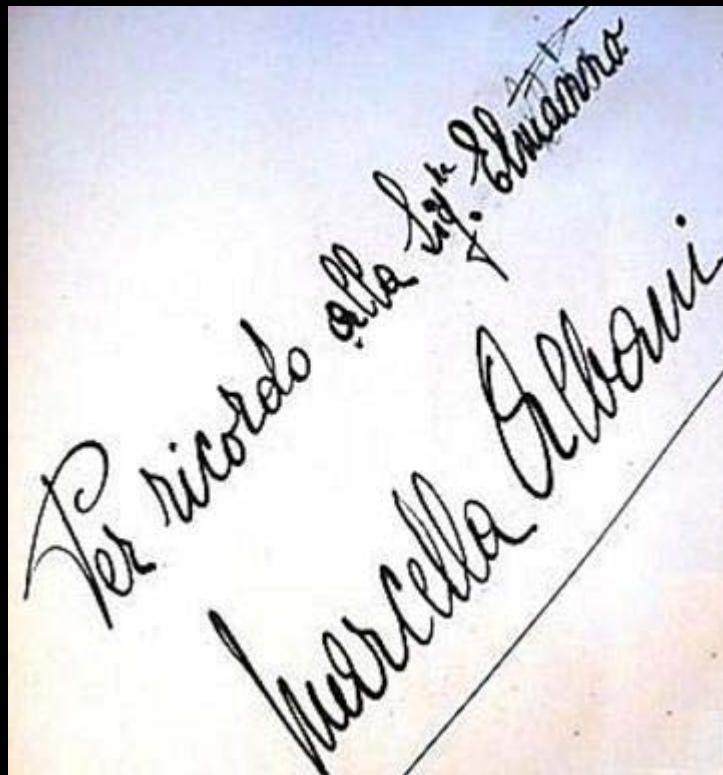 Per ricordo alla Sig.ra Elmanno
Marcella Albani